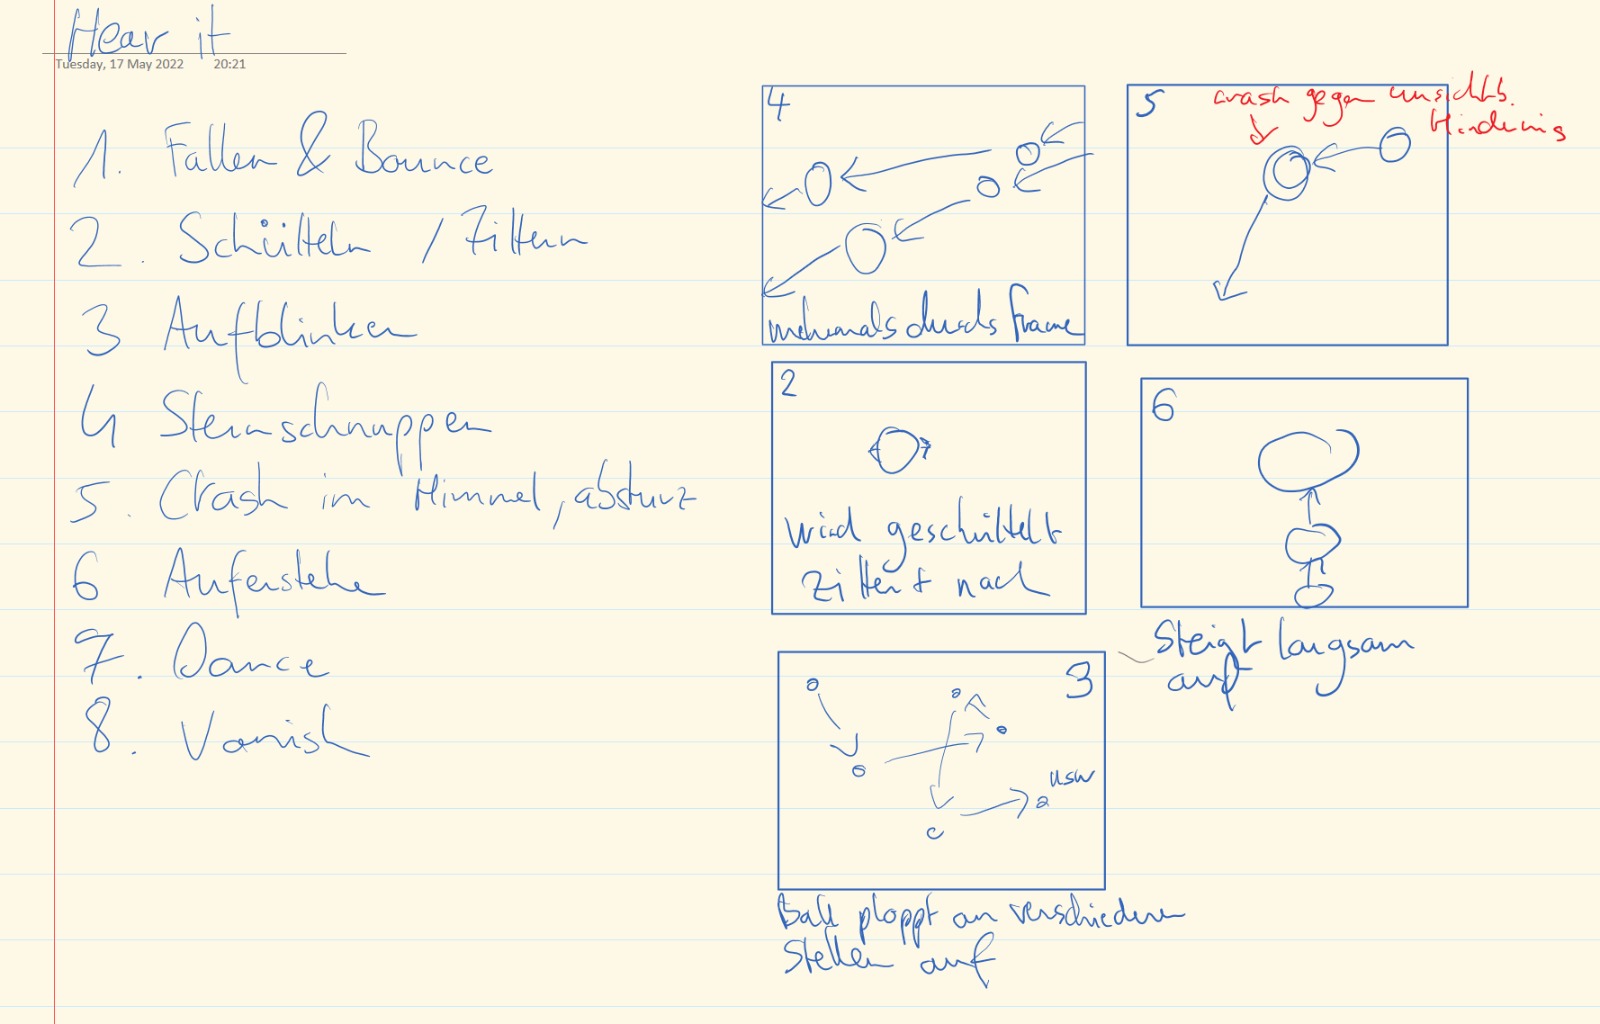 Hear it
Tuesday, 17 May 2022 20:21
1. Fallen & Bounce
2. Schütteln / Zittern
3 Aufblinken
4 Sternschnuppen
5. Crash im Himmel, absturz
6 Auferstehe
7. Dance
8. Vanish
4
mehrmals durchs frame
5
crash gegen unsichtb.
Hindernis
2
wird geschüttelt
zittert nach
6
Steigt langsam
auf
3
usw
Ball ploppt an verschiedenen
Stellen auf